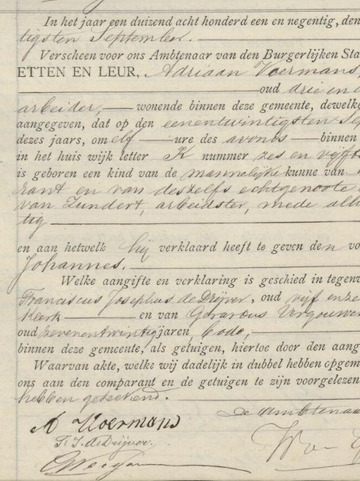 In het jaar een duizend acht honderd een en negentig, den
tigsten September.
Verscheen voor ons Ambtenaar van den Burgerlijken Sta
ETTEN EN LEUR, Adriaan Voermans,
oud drie en
arbeider, wonende binnen deze gemeente, dewelk
aangegeven, dat op den eenentwintigsten Se
dezes jaars, om elf ure des avonds binnen
in het huis wijk letter K nummer zes en vijft
is geboren een kind van de mannelijke kunne van
rant en van deszelfs echtgenoote
van Zundert, arbeidster, mede alh
tig
en aan hetwelk hij verklaard heeft te geven den vo
Johannes.
Welke aangifte en verklaring is geschied in tegenw
Franciscus Josephus de Drijver, oud vijf en ze
klerk en van Gerardus
oud zevenentwintig jaren, bode,
binnen deze gemeente, als getuigen, hiertoe door den aang
Waarvan akte, welke wij dadelijk in dubbel hebben opgem
ons aan den comparant en de getuigen te zijn voorgelezen
hebben geteekend.
De Ambtenaa
A Voermans
F. J. de Drijver.